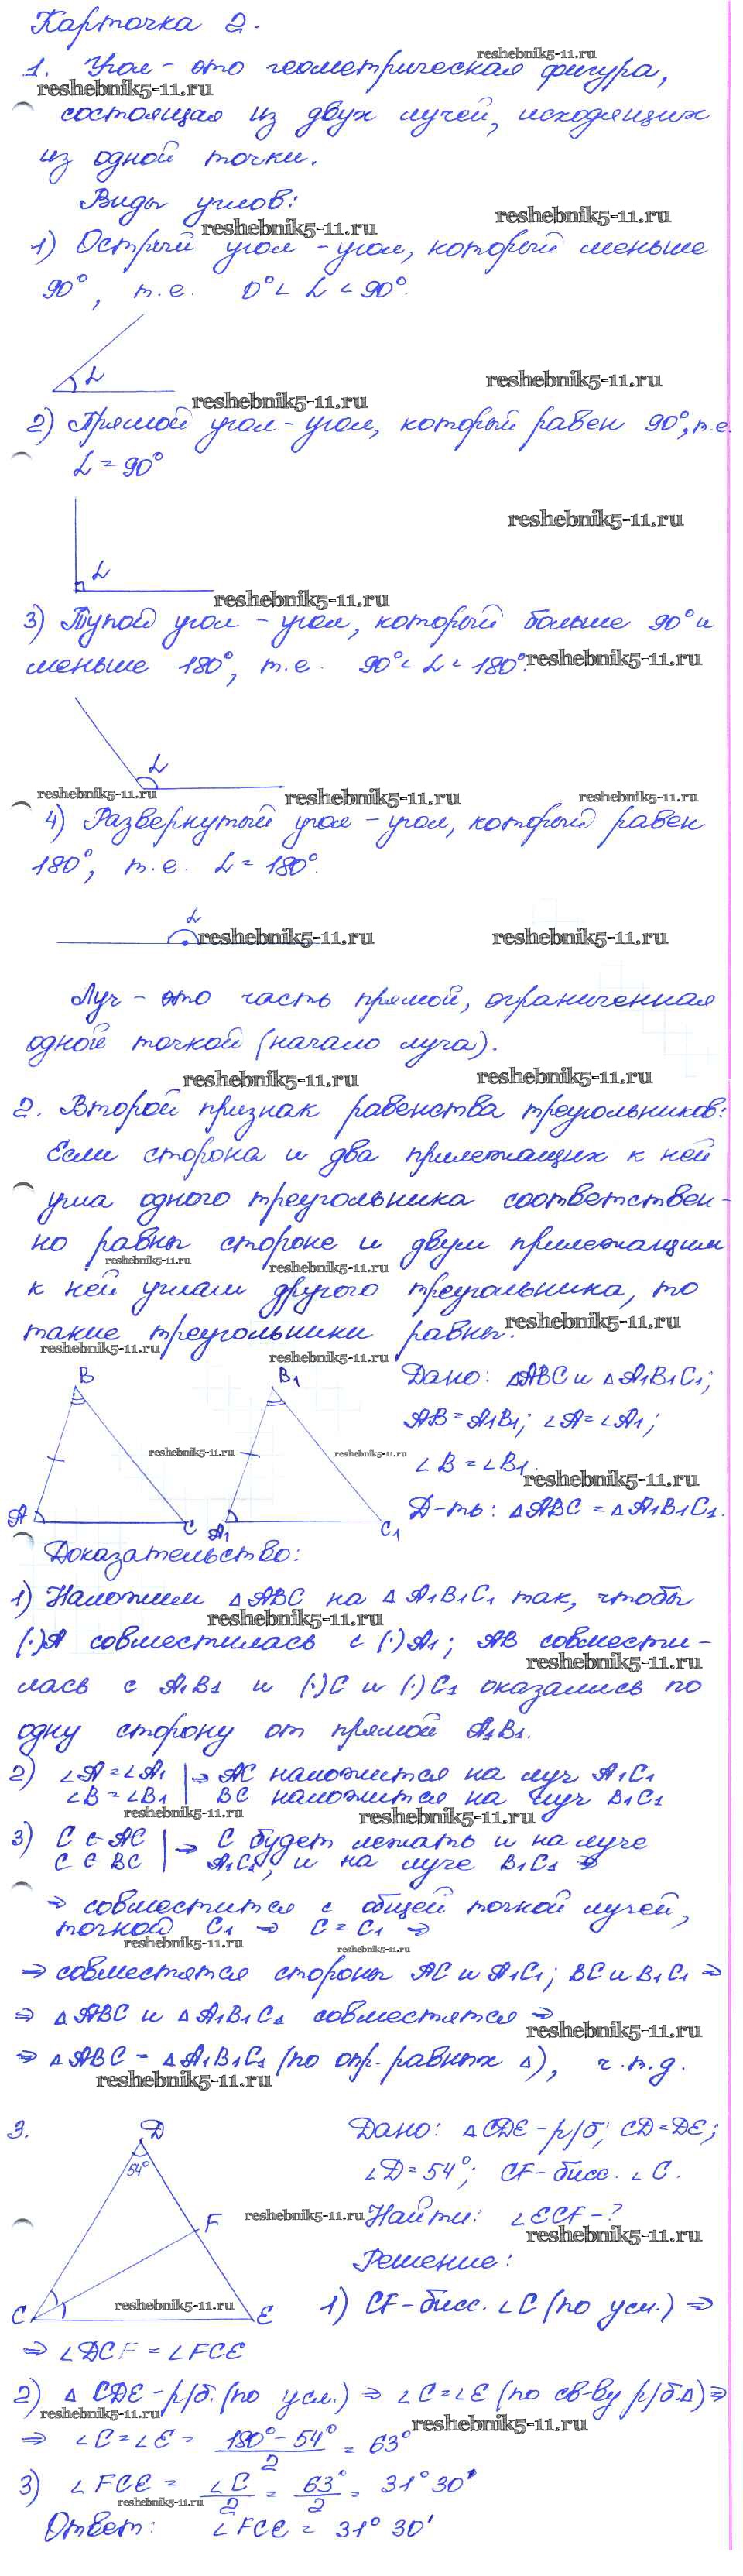 Карточка 2.
reshebnik5-11.ru
1. Угол - это геометрическая фигура,
reshebnik5-11.ru
состоящая из двух лучей, исходящих
из одной точки.
Виды углов:
reshebnik5-11.ru
reshebnik5-11.ru
1) Острый угол - угол, который меньше
90°, т.е. 0° < α < 90°.
α
reshebnik5-11.ru
reshebnik5-11.ru
2) Прямой угол - угол, который равен 90°, т.е.
α = 90°
reshebnik5-11.ru
α
reshebnik5-11.ru
3) Тупой угол - угол, который больше 90° и
меньше 180°, т.е. 90° < α < 180°.
reshebnik5-11.ru
α
reshebnik5-11.ru
reshebnik5-11.ru
reshebnik5-11.ru
4) Развернутый угол - угол, который равен
180°, т.е. α = 180°.
α
reshebnik5-11.ru
reshebnik5-11.ru
Луч - это часть прямой, ограниченная
одной точкой (начало луча).
reshebnik5-11.ru
reshebnik5-11.ru
2. Второй признак равенства треугольников:
Если сторона и два прилежащих к ней
угла одного треугольника соответствен-
но равны стороне и двум прилежащим
reshebnik5-11.ru
reshebnik5-11.ru
к ней углам другого треугольника, то
reshebnik5-11.ru
такие треугольники равны.
reshebnik5-11.ru
reshebnik5-11.ru
B B1 Дано: ΔABC и ΔA1B1C1;
AB = A1B1; ∠A = ∠A1;
reshebnik5-11.ru
reshebnik5-11.ru
∠B = ∠B1.
reshebnik5-11.ru
Д-ть: ΔABC = ΔA1B1C1.
A C A1 C1
Доказательство:
1) Наложим ΔABC на ΔA1B1C1 так, чтобы
reshebnik5-11.ru
(·)A совместилась с (·)A1; AB совмести-
reshebnik5-11.ru
лась с A1B1 и (·)C и (·)C1 оказались по
одну сторону от прямой A1B1.
2) ∠A = ∠A1 | ⇒ AC наложится на луч A1C1
∠B = ∠B1 | BC наложится на луч B1C1
reshebnik5-11.ru
reshebnik5-11.ru
3) C ∈ AC | ⇒ C будет лежать и на луче
C ∈ BC | A1C1, и на луче B1C1 ⇒
⇒ совместится с общей точкой лучей,
точкой C1 ⇒ C = C1 ⇒
reshebnik5-11.ru
reshebnik5-11.ru
⇒ совместятся стороны AC и A1C1; BC и B1C1 ⇒
⇒ ΔABC и ΔA1B1C1 совместятся ⇒
reshebnik5-11.ru
⇒ ΔABC = ΔA1B1C1 (по опр. равных Δ), ч.т.д.
reshebnik5-11.ru
3. D Дано: ΔCDE - р/б; CD = DE;
54° ∠D = 54°; CF - бисс. ∠C.
F reshebnik5-11.ru Найти: ∠ECF - ?
reshebnik5-11.ru
Решение:
reshebnik5-11.ru
C E 1) CF - бисс. ∠C (по усл.) ⇒
⇒ ∠DCF = ∠FCE
2) ΔCDE - р/б. (по усл.) ⇒ ∠C = ∠E (по св-ву р/б.Δ) ⇒
reshebnik5-11.ru
reshebnik5-11.ru
⇒ ∠C = ∠E = (180° - 54°)/2 = 63°
3) ∠FCE = ∠C/2 = 63°/2 = 31°30'
reshebnik5-11.ru
Ответ: ∠FCE = 31°30'